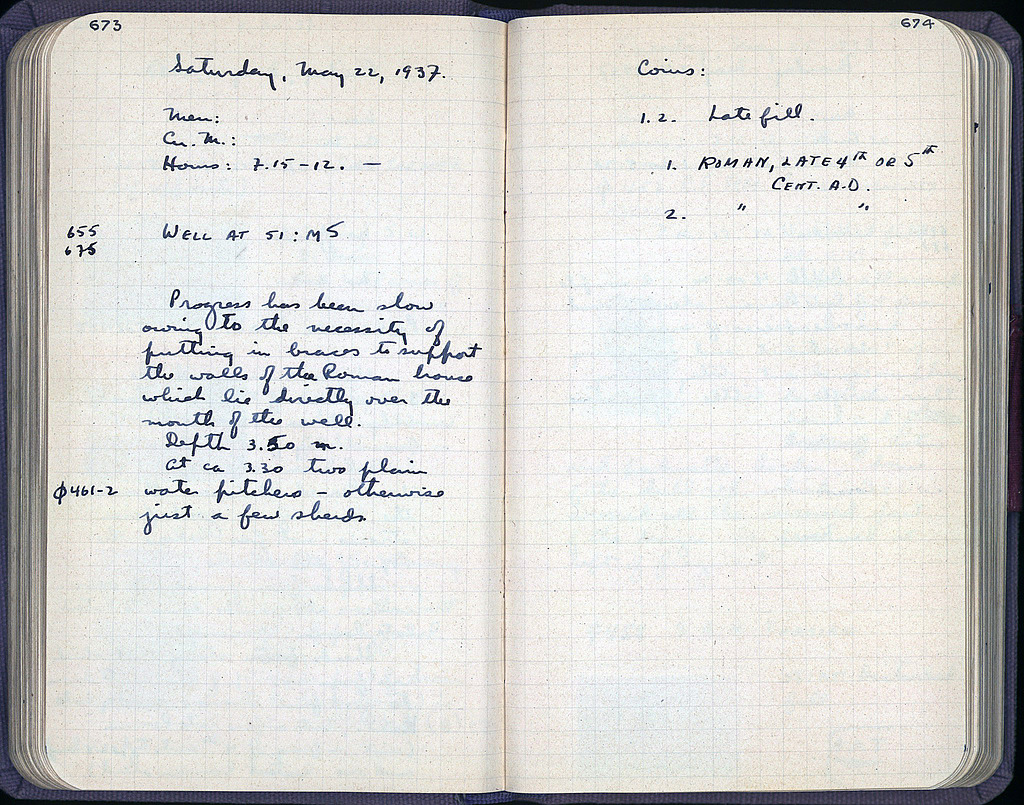 673
Saturday, May 22, 1937.
Men:
Cu. M.:
Hours: 7.15-12. —
655
675
WELL AT 51:M5
Progress has been slow
owing to the necessity of
putting in braces to support
the walls of the Roman house
which lie directly over the
mouth of the well.
Depth 3.50 m.
At ca 3.30 two plain
φ461-2 water pitchers – otherwise
just a few sherds.
674
Coins:
1.2. Late fill.
1. ROMAN, LATE 4TH OR 5TH
CENT. A.D.
2. " "